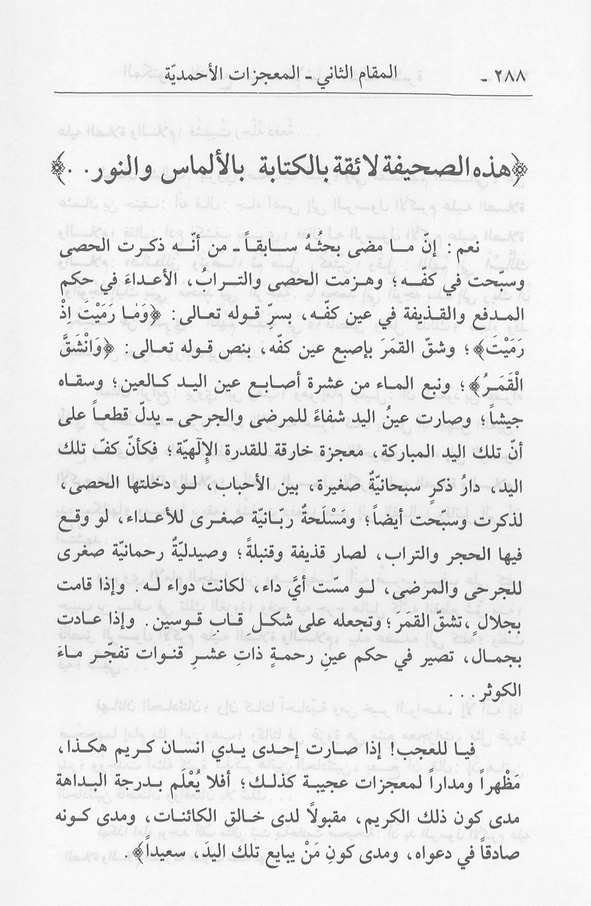 ٢٨٨ ـ المقام الثاني ـ المعجزات الأحمديّة
﴿هذه الصحيفة لائقة بالكتابة بالألماس والنور..﴾
نعم: إنّ مـا مضى بحثُـهُ سـابقـاً ـ من أنّـه ذكـرت الحصى
وسبّحت في كفّـه؛ وهـزمت الحصى والتـرابُ، الأعـداءَ في حكم
المدفع والقذيفة في عين كفّه، بسرِّ قوله تعالى: ﴿وَمَا رَمَيْتَ إِذْ
رَمَيْتَ﴾؛ وشقّ القمَرَ بإصبع عين كفّه، بنص قوله تعالى: ﴿وَانْشَقَّ
الْقَمَـرُ﴾؛ ونبع المـاء من عشرة أصـابـع عين اليـد كـالعين؛ وسقـاه
جيشاً؛ وصارت عينُ اليد شفاءً للمرضى والجرحى ـ يدلّ قطعـاً على
أنّ تلك اليد المباركة، معجزة خارقة للقدرة الإلٓهيّة؛ فكأنّ كفّ تلك
اليد، دارُ ذكرٍ سبحانيّةٌ صغيرة، بين الأحباب، لـو دخلتها الحصى،
لذكرت وسبّحت أيضاً؛ ومَسْلَحةٌ ربّـانيّة صغـرى للأعـداء، لو وقع
فيها الحجر والتراب، لصار قذيفة وقنبلةً؛ وصيدليّةٌ رحمانية صغرى
للجرحى والمرضى، لـو مسّت أيَّ داء، لكانت دواء لـه. وإذا قامت
بجلالٍ، تشقّ القمرَ؛ وتجعله على شكـل قـابِ قـوسين. وإذا عـادت
بجمـال، تصير في حكم عينِ رحمـةٍ ذاتِ عشـرِ قنـوات تفجّـر مـاءَ
الكوثر...
فيـا للعجب! إذا صـارت إحـدى يـدي انسـان كـريم هكـذا،
مَظْهراً ومداراً لمعجزات عجيبـة كذلـك؛ أفلا يُعْلَم بـدرجة البـداهة
مدى كون ذلك الكريم، مقبولًا لدى خالق الكائنـات، ومدى كـونه
صادقاً في دعواه، ومدى كونِ مَنْ يبايع تلك اليدَ، سعيداً﴾.